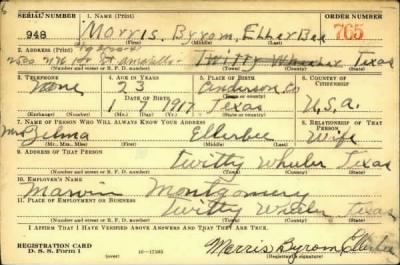 SERIAL NUMBER 1. NAME (Print) ORDER NUMBER
948 Morris. Byrom, EllerBee 765
(First) (Middle) (Last)
2. ADDRESS (Print)
Amarillo Twitty Wheeler Texas
(Number and street or R. F. D. number) (Town) (County) (State)
3. TELEPHONE 4. AGE IN YEARS 5. PLACE OF BIRTH 6. COUNTRY OF CITIZENSHIP
None 23 Anderson Co
DATE OF BIRTH
1 7 1917 Texas U.S.A.
(Mo.) (Day) (Yr.) (State or country)
7. NAME OF PERSON WHO WILL ALWAYS KNOW YOUR ADDRESS 8. RELATIONSHIP OF THAT PERSON
Mrs Zelma Ellerbee Wife
(Mr., Mrs., Miss) (First) (Middle) (Last)
9. ADDRESS OF THAT PERSON
Twitty Wheeler Texas
(Number and street or R. F. D. number) (Town) (County) (State)
10. EMPLOYER'S NAME
Marvin Montgomery
11. PLACE OF EMPLOYMENT OR BUSINESS
Twitty Wheeler Texas
(Number and street or R. F. D. number) (Town) (County) (State)
I AFFIRM THAT I HAVE VERIFIED ABOVE ANSWERS AND THAT THEY ARE TRUE.
REGISTRATION CARD
D. S. S. Form 1 (over) 16—17105 Morris Byrom Ellerbee
(Registrant's signature)